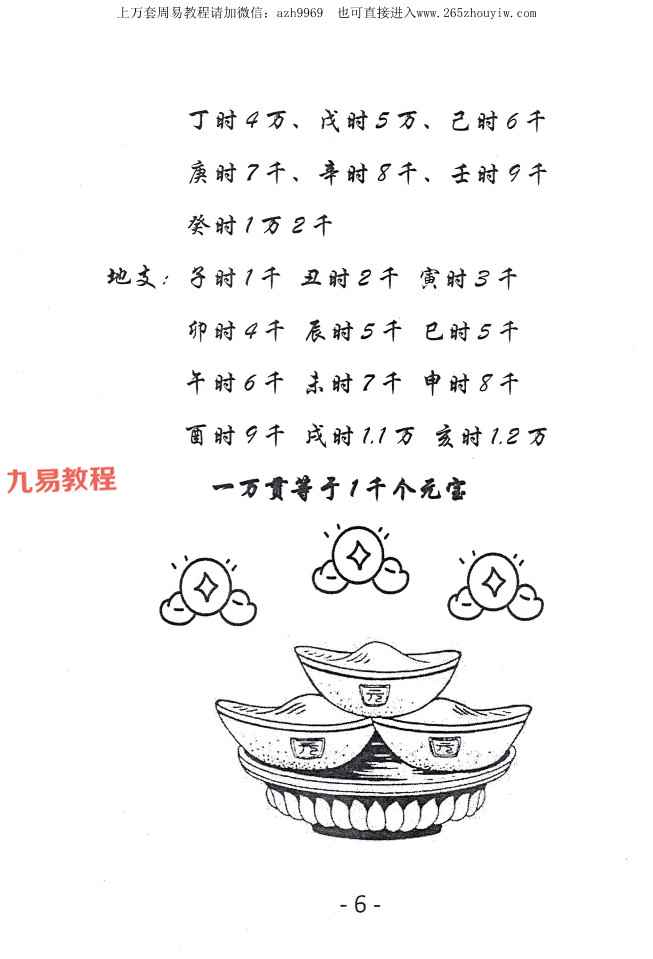 上万套周易教程请加微信：azh9969 也可直接进入www.265zhouyiw.com
丁时4万、戊时5万、己时6千
庚时7千、辛时8千、壬时9千
癸时1万2千
地支：子时1千 丑时2千 寅时3千
卯时4千 辰时5千 巳时5千
午时6千 未时7千 申时8千
酉时9千 戌时1.1万 亥时1.2万
九易教程
一万贯等于1千个元宝
- 6 -